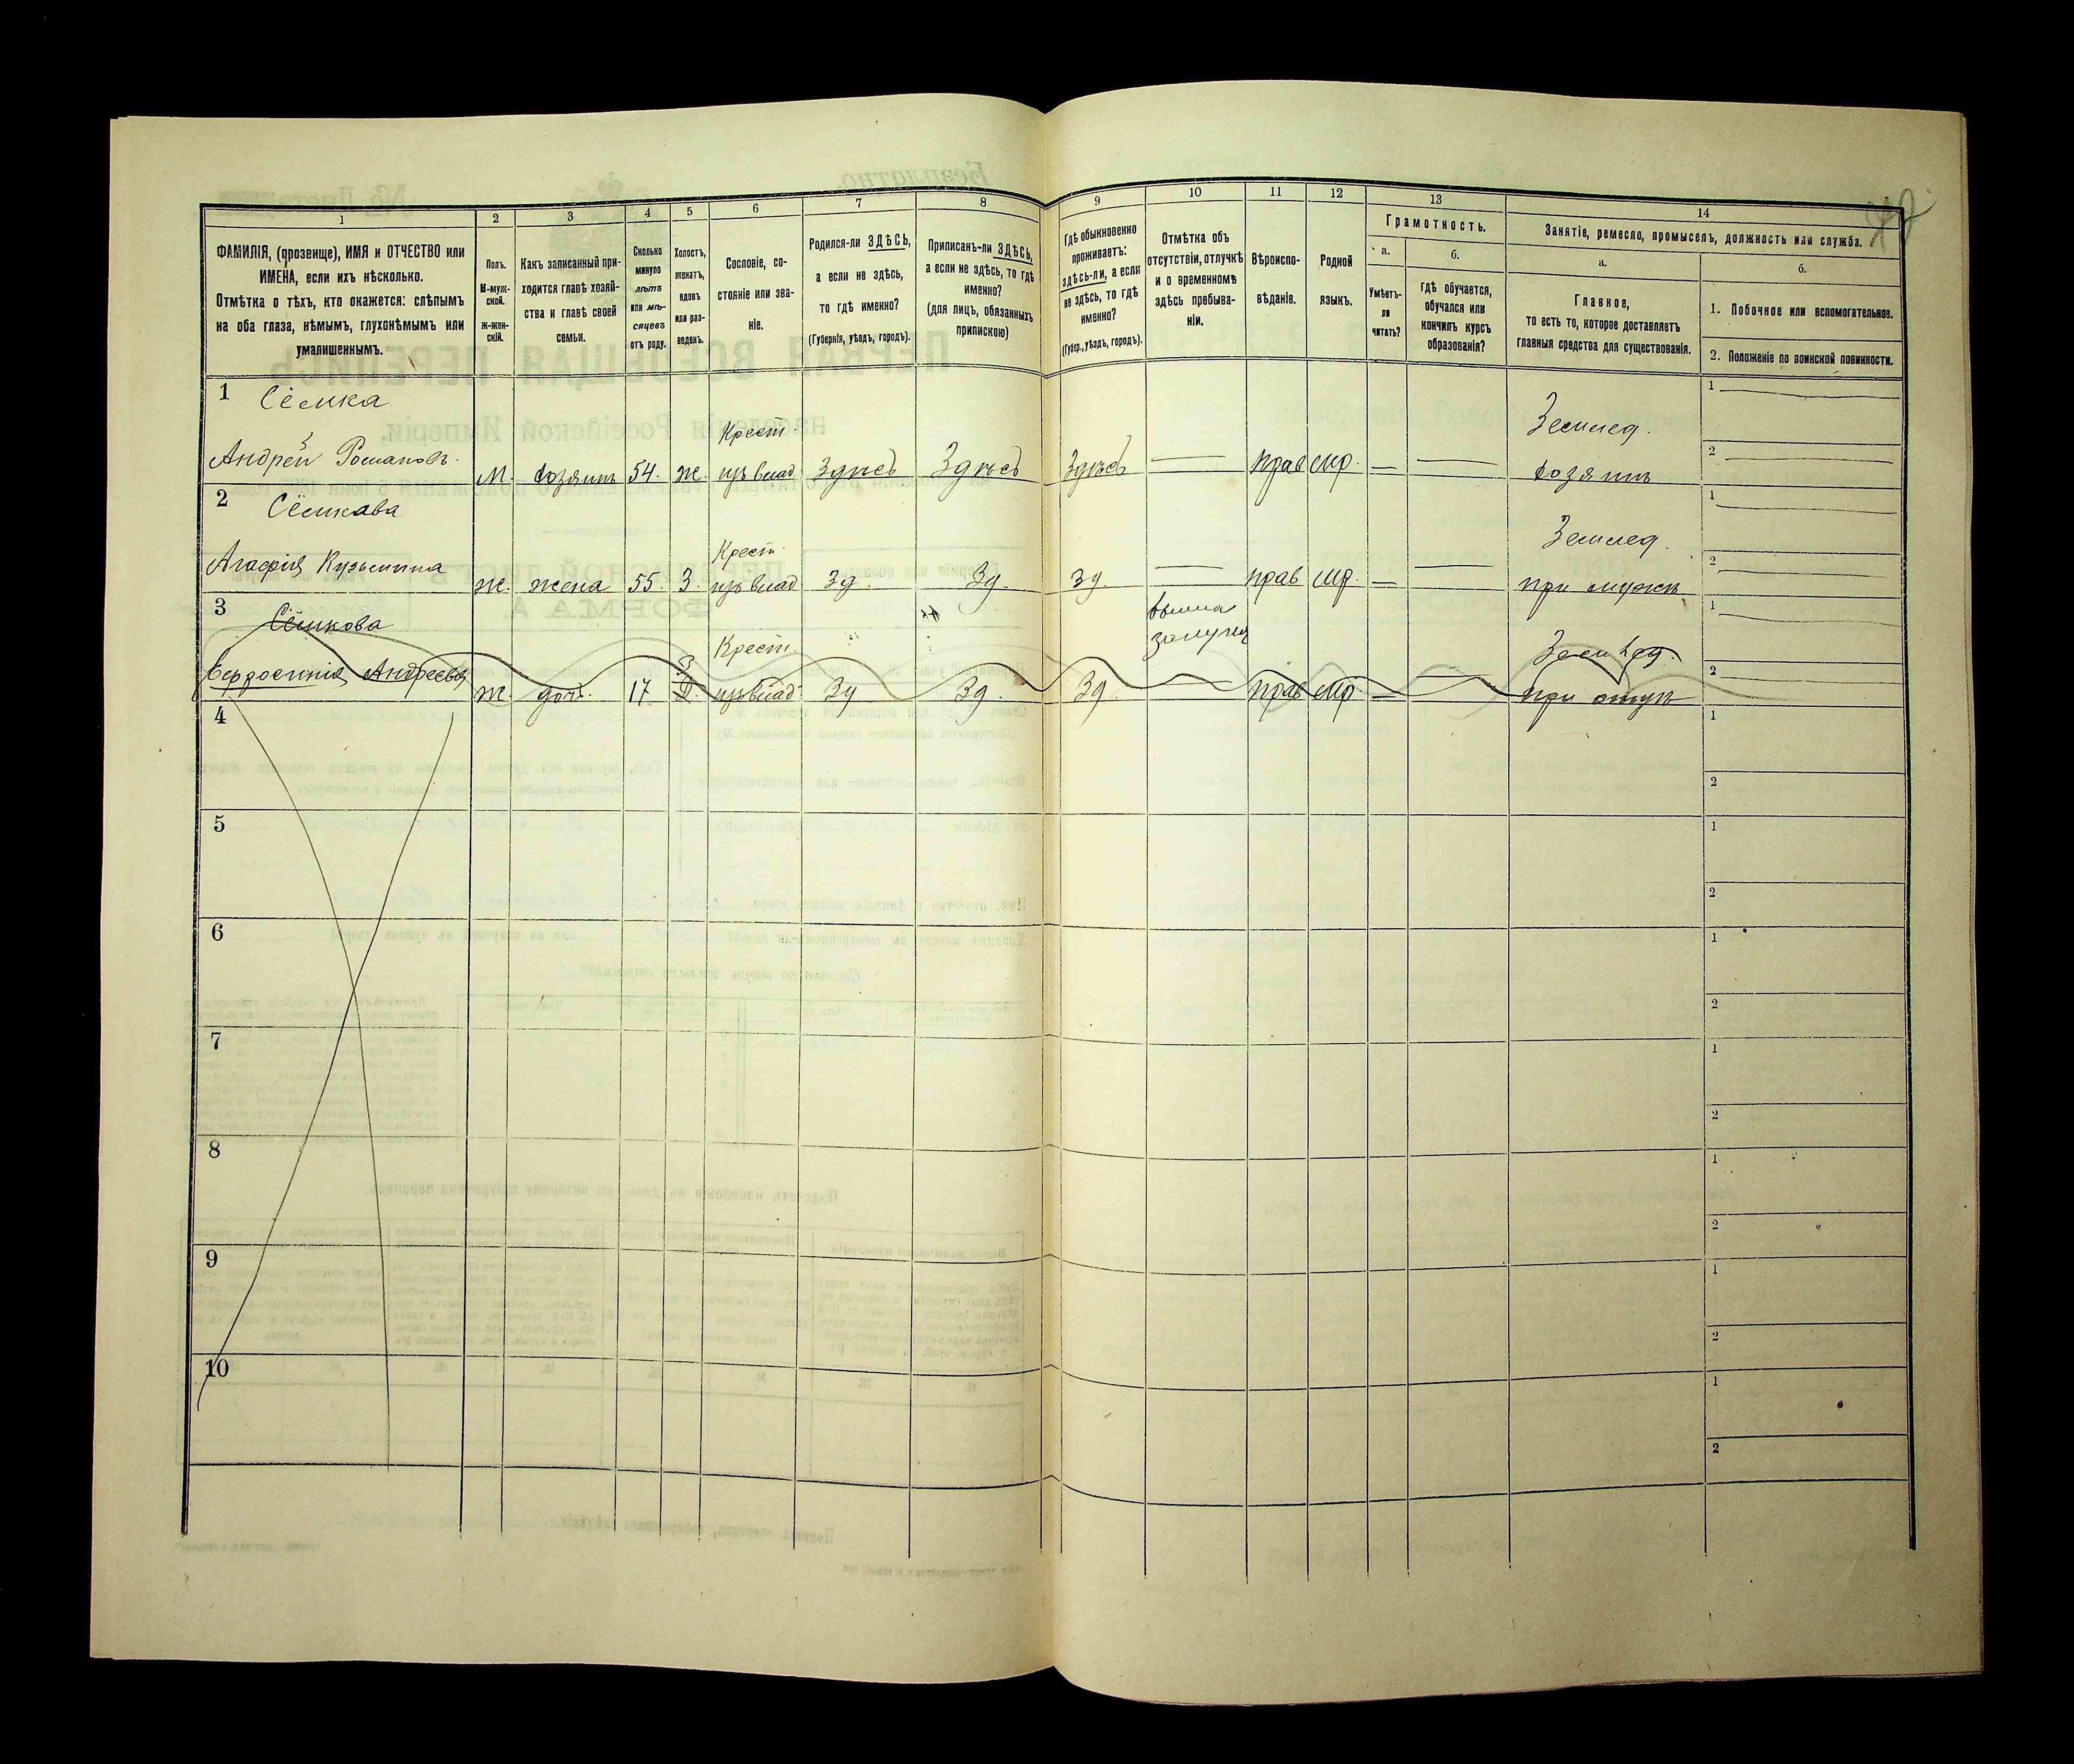 1 2 3 4 5 6 7 8 9 10 11 12 13 14
ФАМИЛІЯ, (прозвище), ИМЯ и ОТЧЕСТВО или
ИМЕНА, если ихъ нѣсколько.
Отмѣтка о тѣхъ, кто окажется: слѣпымъ
на оба глаза, нѣмымъ, глухонѣмымъ или
умалишеннымъ.
Полъ.
М-муж-
ской.
ж-жен-
скій.
Какъ записанный при-
ходится главѣ хозяй-
ства и главѣ своей
семьи.
Сколько
минуло
лѣтъ
или мѣ-
сяцевъ
отъ роду.
Холостъ,
женатъ,
вдовъ
или раз-
веденъ.
Сословіе, со-
стояніе или зва-
ніе.
Родился-ли ЗДѢСЬ,
а если не здѣсь,
то гдѣ именно?
(Губернія, уѣздъ, городъ).
Приписанъ-ли ЗДѢСЬ,
а если не здѣсь, то гдѣ
именно?
(для лицъ, обязанныхъ
припискою)
Гдѣ обыкновенно
проживаетъ:
здѣсь-ли, а если
не здѣсь, то гдѣ
именно?
(Губер., уѣздъ, городъ).
Отмѣтка объ
отсутствіи, отлучкѣ
и о временномъ
здѣсь пребыва-
ніи.
Вѣроиспо-
вѣданіе.
Родной
языкъ.
Грамотность.
а.
Умѣетъ-
ли
читать?
б.
гдѣ обучается,
обучался или
кончилъ курсъ
образованія?
Занятіе, ремесло, промыселъ, должность или служба.
а.
Главное,
то есть то, которое доставляетъ
главныя средства для существованія.
б.
1. Побочное или вспомогательное.
2. Положеніе по воинской повинности.
1 Сёмка
Андрей Романовъ М. хозяинъ 54. Ж. Крест. изъ влад Здѣсь Здѣсь Здѣсь — прав мр. — — Землед. хозяинъ
1
2
2 Сёмкава
Агафія Кузьмина Ж. жена 55 З. Крест. изъ влад Зд. Зд. Зд. — прав мр. — — Землед. при мужѣ
1
2
3 Сёмкова
Андреева Ж. доч. 17 Крест. изъ влад Зд Зд. Зд. вышла замужъ прав мр. — Землед. при отцѣ
1
2
4
1
2
5
1
2
6
1
2
7
1
2
8
1
2
9
1
2
10
1
2